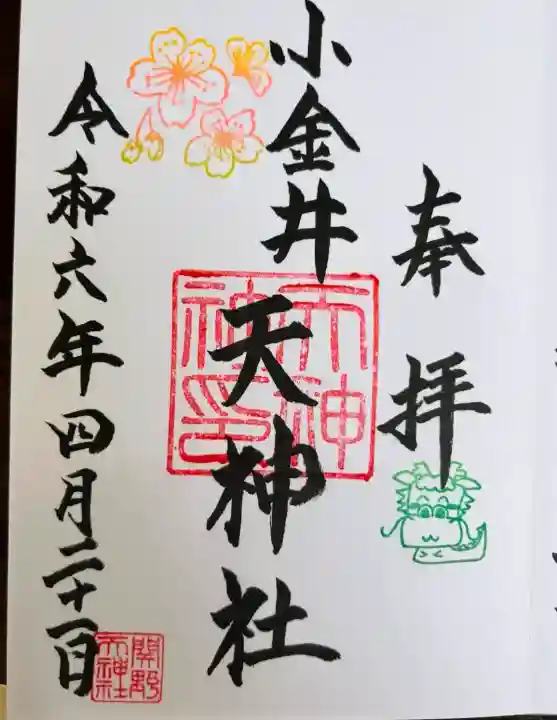 奉拝
小金井
天神社
天神
社印
令和六年四月二十一日
関野
天神社